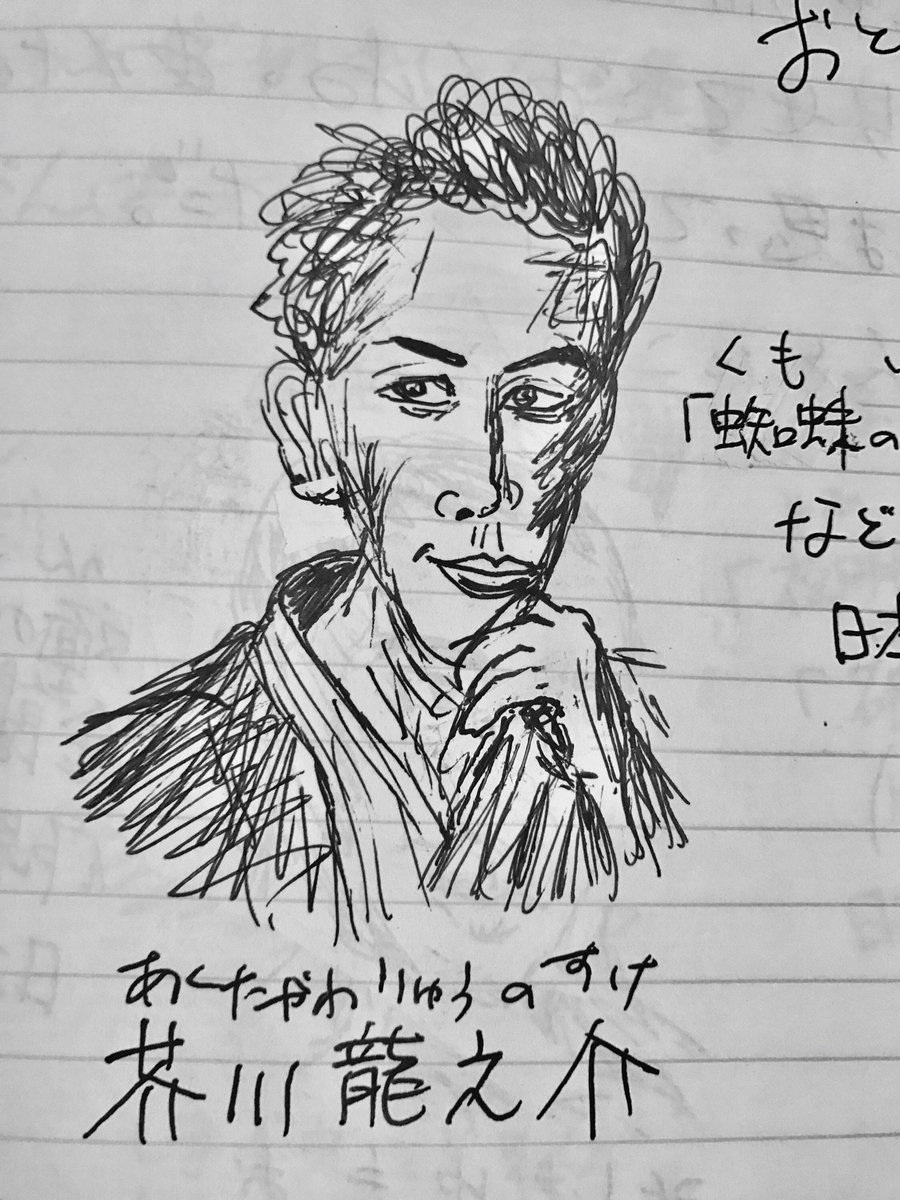 おと
くも
「蜘蛛の
など
日本
あくたがわりゅうのすけ
芥川龍之介